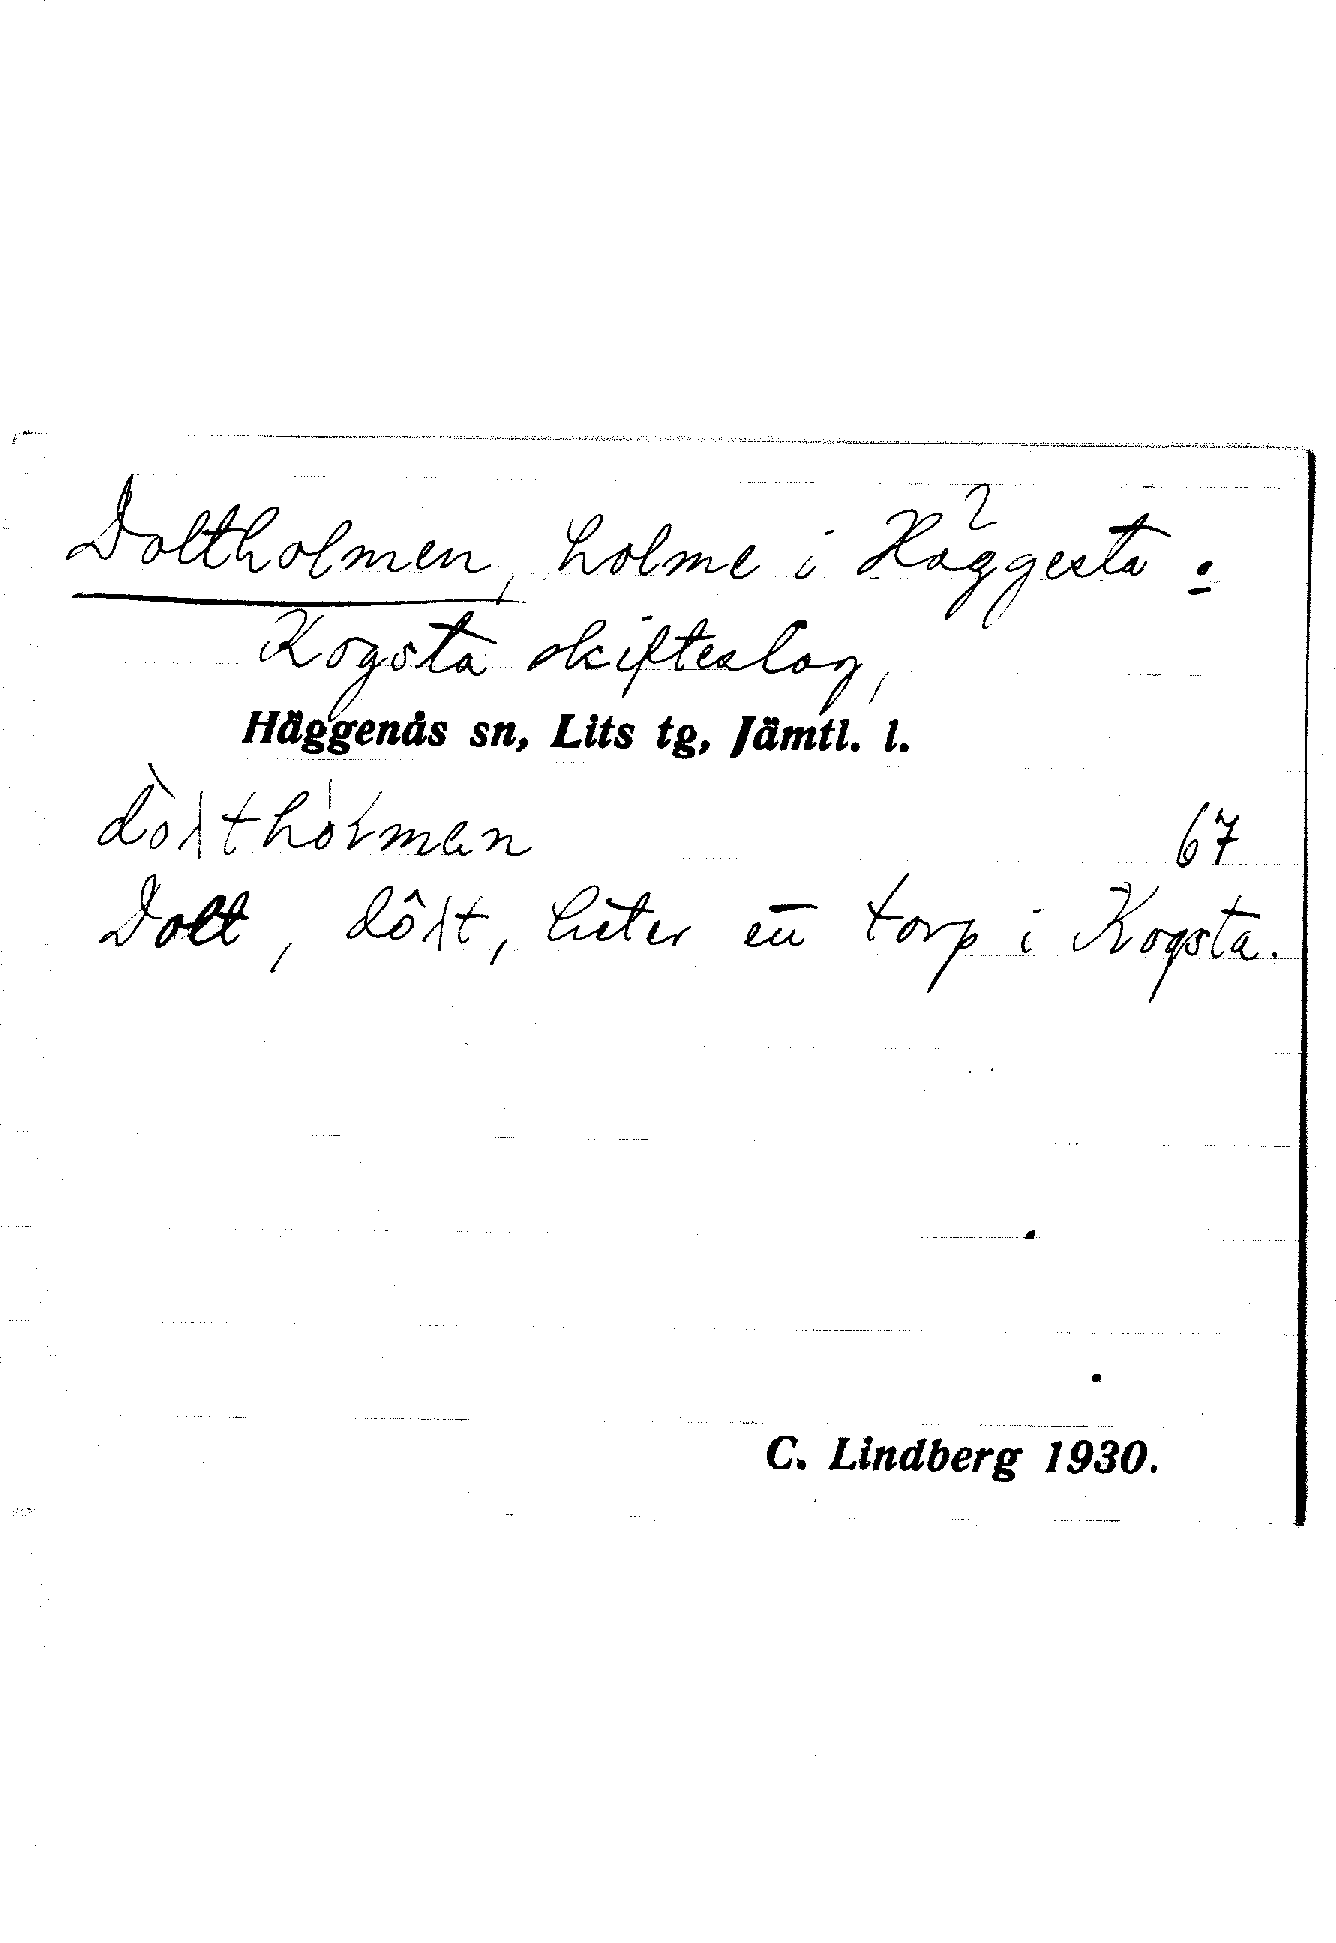 Doltholmen, holme i Häggesta o
Kogsta skifteslag,
Häggenås sn, Lits tg, Jämtl. l.
67
Dolt, heter ett torp i Kogsta.
C. Lindberg 1930.